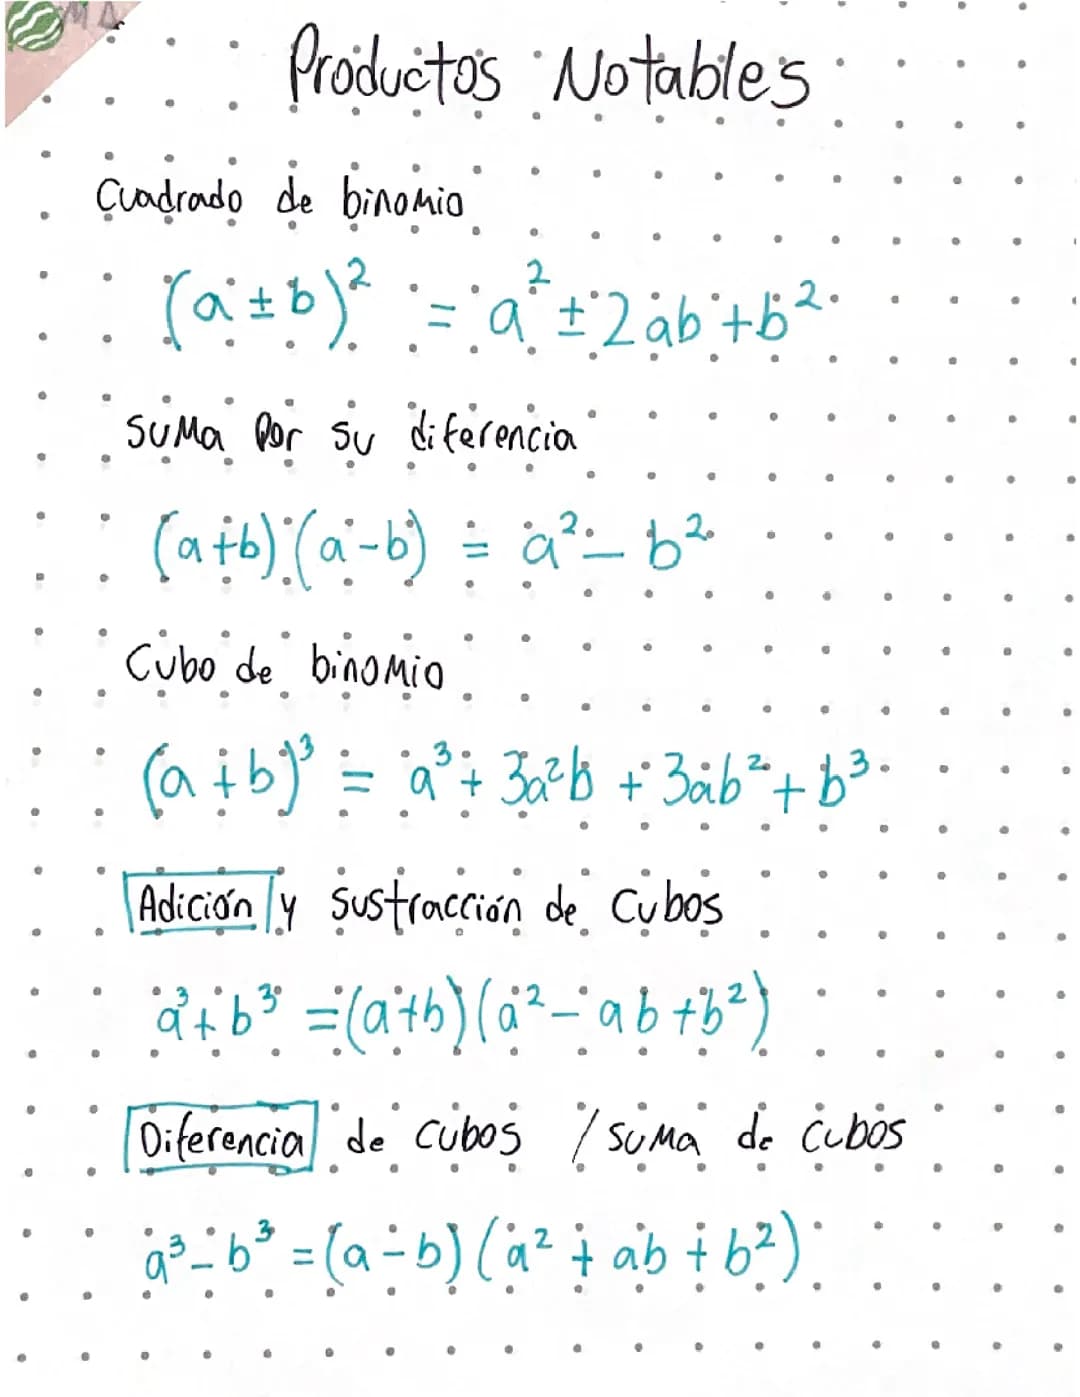 Productos Notables
Cuadrado de binomio
(a ± b)² = a² ± 2ab + b²
Suma Por su diferencia
(a+b)(a-b) = a² - b²
Cubo de binomio
(a + b)³ = a³ + 3a²b + 3ab² + b³
Adición y sustracción de Cubos
a³ + b³ = (a+b)(a² - ab + b²)
Diferencia de cubos / suma de cubos
a³ - b³ = (a - b)(a² + ab + b²)